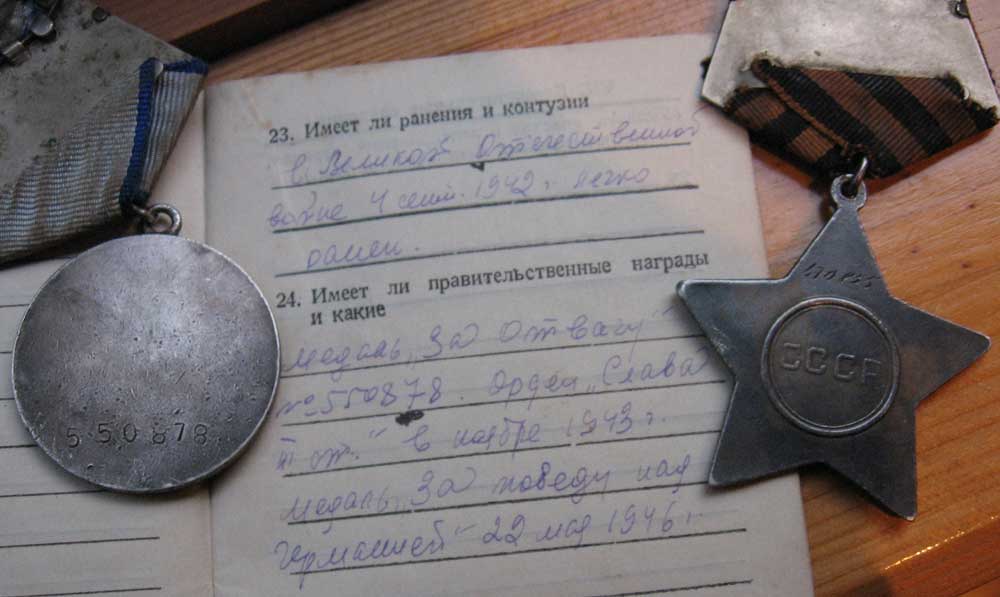 23. Имеет ли ранения и контузии
в Великой Отечественной
войне 4 сент. 1942 г. легко
ранен.
24. Имеет ли правительственные награды
и какие
медаль „За Отвагу"
№ 550878. Орден „Слава
III ст." в ноябре 1943 г.
медаль „За победу над
Германией" 22 мая 1946 г.
550878
СССР